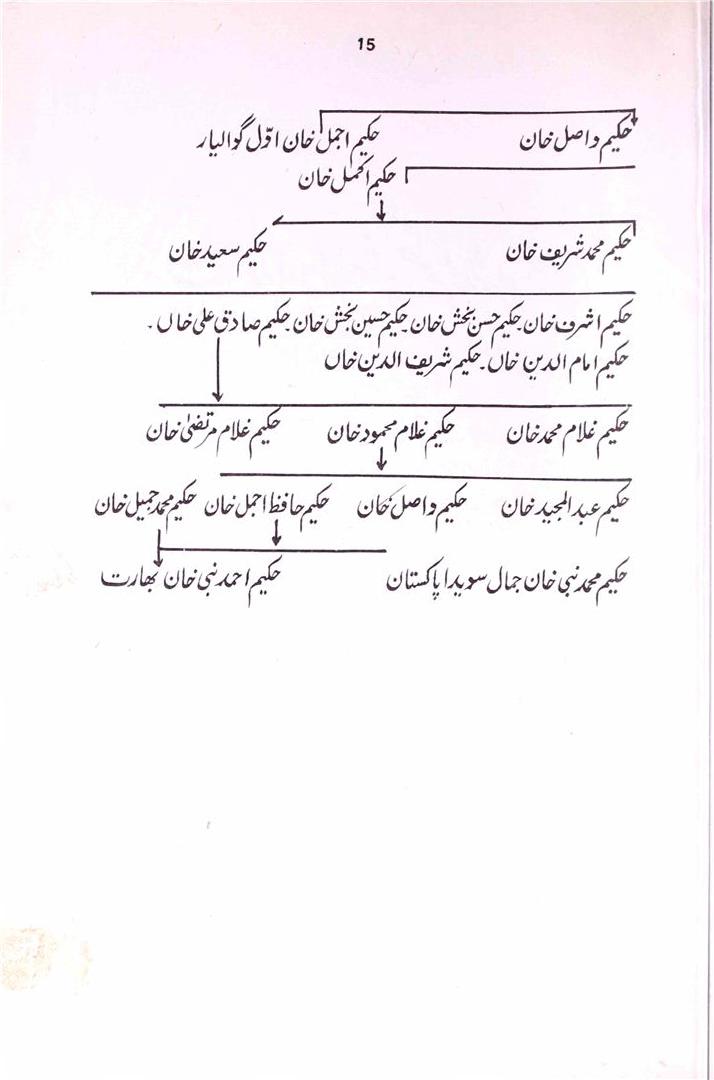 15
حکیم واصل خان حکیم اجمل خان اوّل گوالیار
حکیم اکمل خان
حکیم محمد شریف خان حکیم سعید خان
حکیم اشرف خان۔ حکیم حسن بخش خان۔ حکیم حسین بخش خان۔ حکیم صادق علی خاں۔
حکیم امام الدین خاں۔ حکیم شریف الدین خاں
حکیم غلام محمد خان حکیم غلام محمود خان حکیم غلام مرتضیٰ خان
حکیم عبدالمجید خان حکیم واصل خان حکیم حافظ اجمل خان حکیم محمد جمیل خان
حکیم محمد نبی خان جمال سویدا پاکستان حکیم احمد نبی خان بھارت